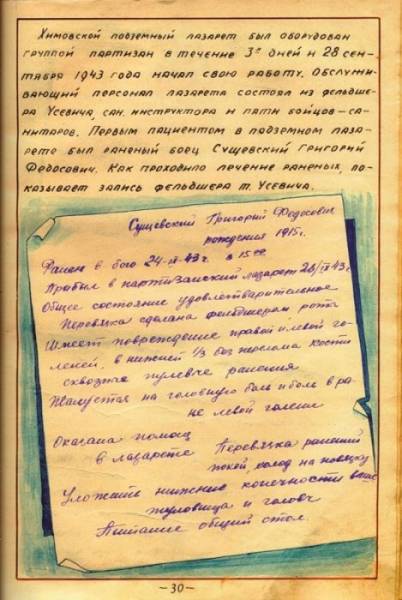 Химовской подземный лазарет был оборудован
группой партизан в течение 3х дней и 28 сен-
тября 1943 года начал свою работу. Обслужи-
вающий персонал лазарета состоял из фельдше-
ра Усевича, сан. инструктора и пяти бойцов-са-
нитаров. Первым пациентом в подземном лаза-
рете был раненый боец Сущевский Григорий
Федосович. Как проходило лечение раненых, по-
казывает запись фельдшера т. Усевича.
Сущевский Григорий Федосович
рождения 1915 г.
Ранен в бою 24-IX 43 г. в 15 00
Прибыл в партизанский лазарет 28/IX 43 г
Общее состояние удовлетварительное
Перевязка сделана фельдшером роты
Имеет повреждение правой и левой го-
леней, в нижней 1/3 без перелома кости
сквозные пулевые ранения
Жалуется на головную боль и боль в ра-
не левой голени
Оказана помощ
в лазарете Перевязка ранений
покой, холод на повязку
Уложить нижние конечности выше
туловища и головы
Питание общий стол
-30-